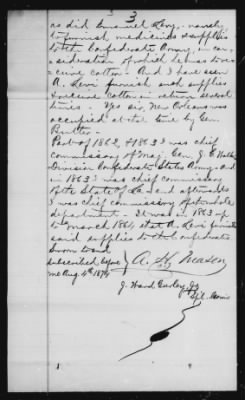 3
as did Emanuel Levy - namely
to furnish medicines & supplies
to the Confederate Army, in con-
sideration of which he was to re-
ceive cotton - And I have seen
A. Levi furnish such supplies
& receive cotton in return several
times - Yes sir, New Orleans was
occupied at the time by Gen
Butler -
Part of 1862, & 1863 I was chief
commissary of Maj. Gen. J. G. Walker
Division Confederate States Army - and
in 1863 I was chief commissary
of the State of La. and afterwards
I was chief commissary of the whole
department - It was in 1863 - up
to March 1864 that A. Levi furnished
said supplies to the Confederate
Sworn to and
subscribed before
me Aug. 4th 1874
A. H. Mason
J. Ward Gurley Jr
Spl. Comr